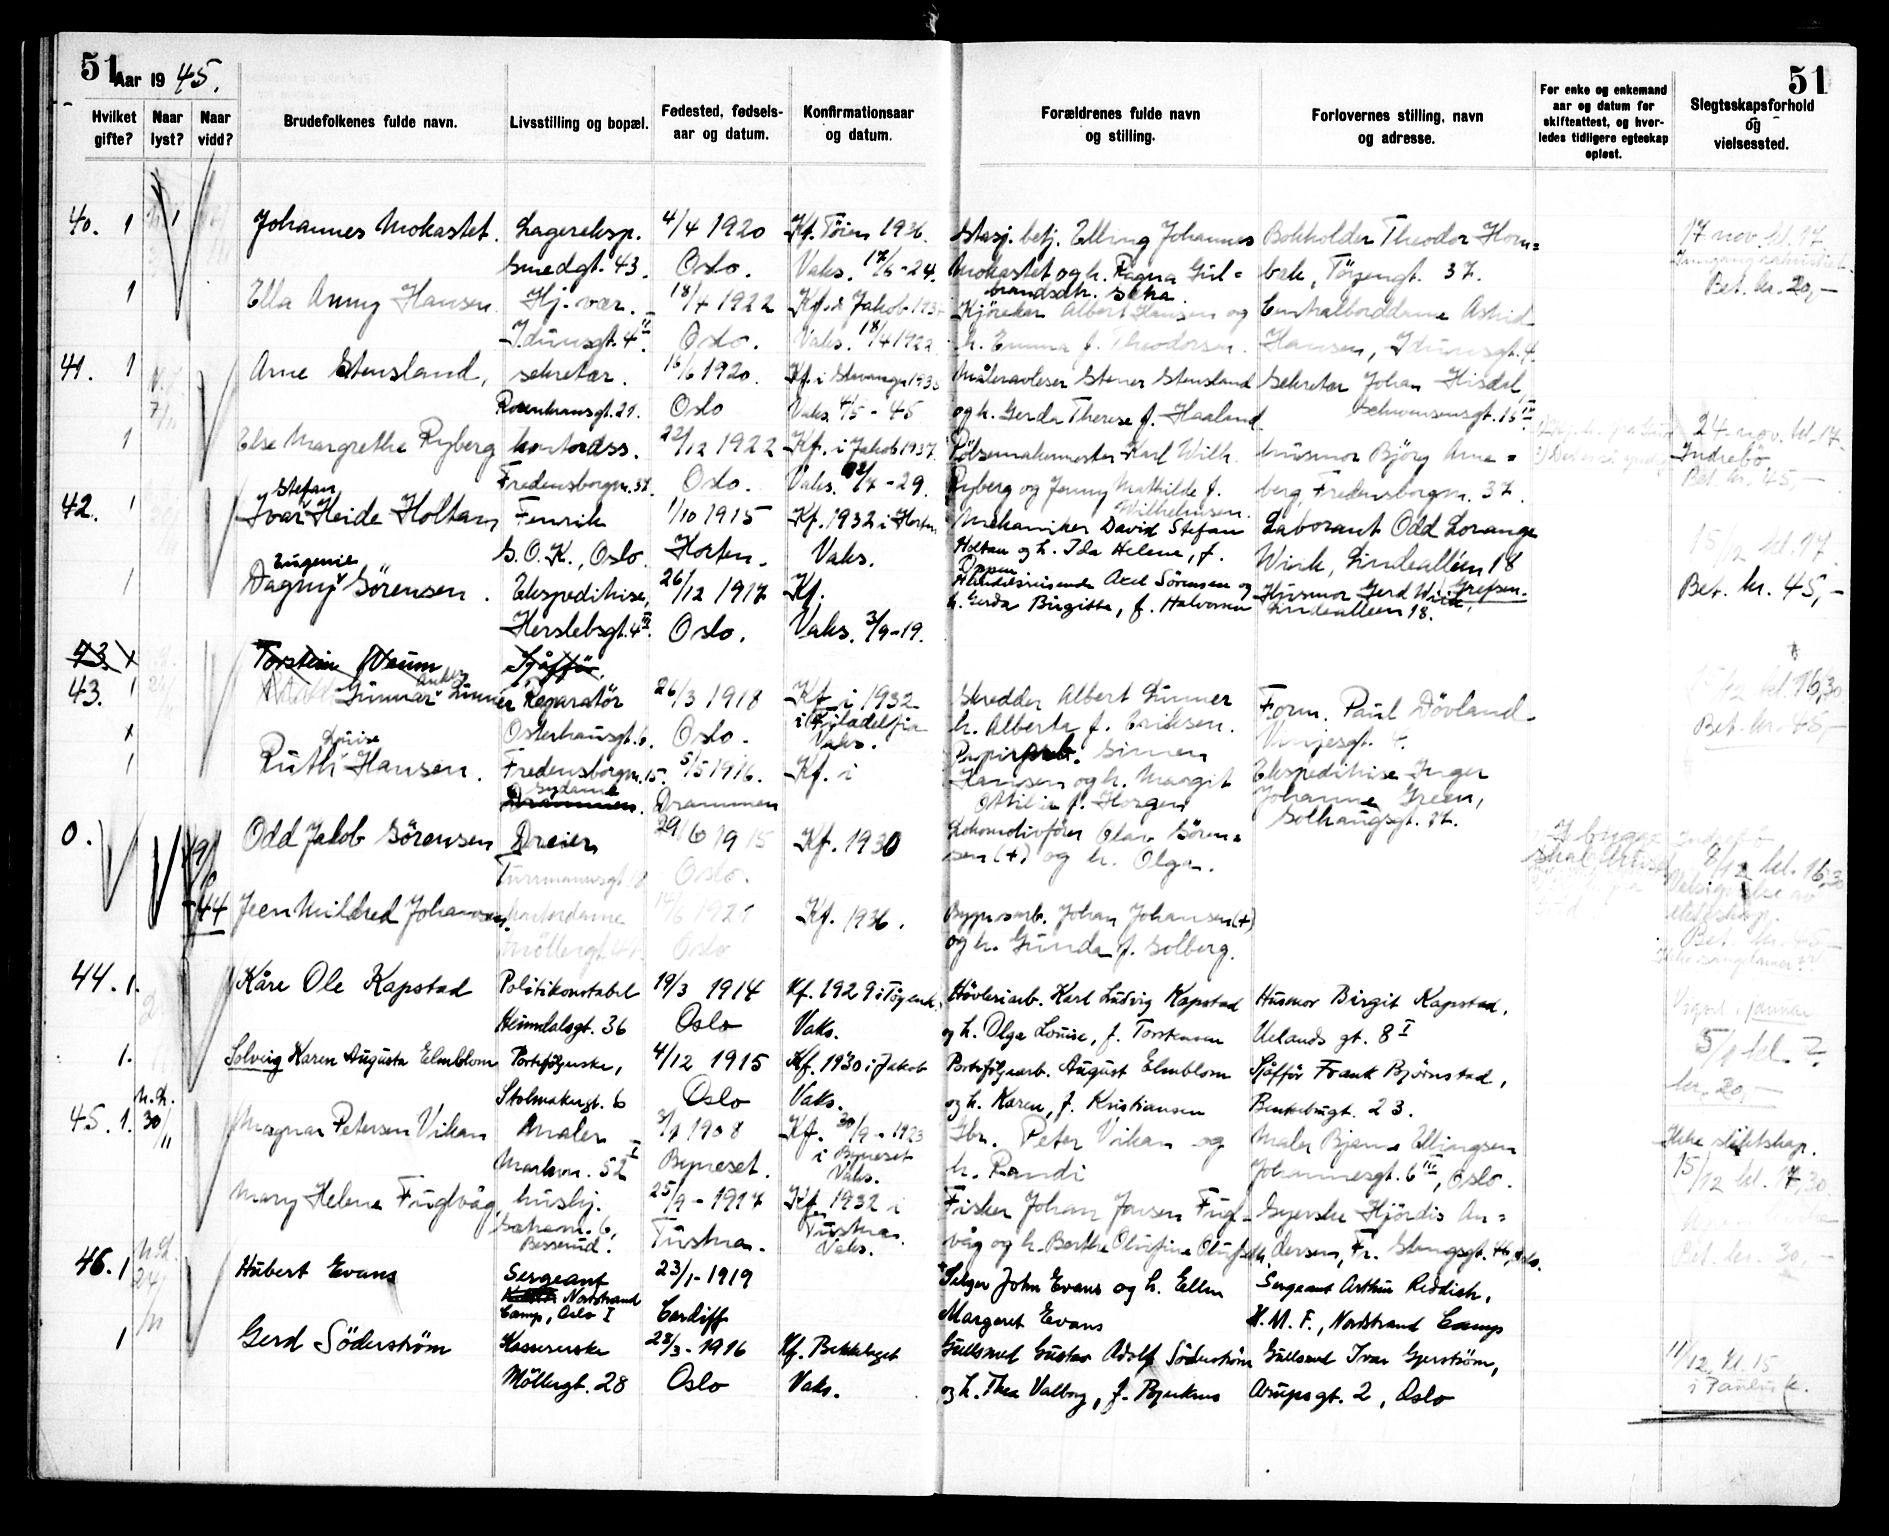 51 Aar 1945. 51
Hvilket gifte? Naar lyst? Naar vidd? Brudefolkenes fulde navn. Livsstilling og bopæl. Fødested, fødselsaar og datum. Konfirmationsaar og datum. Forældrenes fulde navn og stilling. Forlovernes stilling, navn og adresse. For enke og enkemand aar og datum for skifteattest, og hvorledes tidligere egteskap opløst. Slegtsskapsforhold og vielsessted.
40. 1 Johannes Mokastet. Lagereksp. 4/4 1920 Kf. Tøien 1936. Stasj. betj. Elling Johannes Bokholder Theodor Horn= 17 nov. kl. 17.
Smedgt. 43. Oslo. Vaks. 17/6-24. Mokastet og h. Ragna Gul= bæk, Tøyengt. 37.
brandsdtr. Bet. kr. 20,-
1 Ella Anny Hansen. Hj. vær. 18/4 1922 Kf. i Jakob Kjørekar Albert Hansen og Centralborddame Astrid
Idunsgt. 4 II. Oslo. Vaks. 18/4 1922 h. Emma f. Theodorsen. Hansen, Idunsgt. 4.
41. 1 Arne Stensland, sekretær. 16/6 1920. Kf. i Stavanger 1935 Måleravleser Stener Stensland Sekretær Johan Hisdal,
Rosenkransgt. 21. Oslo Vaks. 4/5-45 og h. Gerda Therese f. Haaland Schwensensgt. 15 IV
1 Else Margrethe Ryberg kontordss. 22/12 1922 Kf. i Jakob 1937. Pølsemakermester Karl Wilh. Husmor Bjørg Arne= 24. nov. kl. 17.
Indrebø
Fredensborgvn. 37. Oslo. Vaks. -29. Ryberg og Jenny Mathilde f. berg, Fredensborgvn. 37. Bet. kr. 45,-
Wilhelmsen.
Stefan
42. 1 Ivar Heide Holtan, Fenrik 1/10 1915 Kf. 1932 i Horten Mekaniker David Stefan Laborant Odd Lorange 15/12 kl. 17.
S. O. K., Oslo. Horten. Vaks. Holtan og h. Ida Helene, f. Wiik, Lindealléen 18
Eugenie
1 Dagny Sørensen. Ekspeditrise, 26/12 1917 Kf. Handelsreisende Axel Sørensen og Husmor Gerd Wiik, Grefsen. Bet. kr. 45,-
Herslebsgt. 4 III. Oslo. Vaks. 3/9-19. h. Gerda Birgitte, f. Halvorsen Lindealleen 18.
43. x Torstein Sjåffør.
43. 1 Gunnar Anker Linner Reparatør 26/3 1918 Kf. i 1932 Skredder Albert Linner Form. Paul Døvland. 15/12 kl. 16,30
x Osterhausgt. 6. Oslo. i Filadelfia h. Alberta f. Eriksen. Vinjesgt. 4. Bet. kr. 45,-
Vaks.
Luise
1 Ruth Hansen. Fredensborgvn. 15. 5/5 1916. Kf. i Papirarb. Simen Ekspeditrise Inger
Sydame Hansen og h. Margit Johanne Green,
Drammen. Drammen Otilie f. Horgen Solhaugsgt. 27.
0. 19/ Odd Jakob Sørensen Dreier 29/6 1915 Kf. 1930 Lokomotivfører Olav Søren= Indrebø
Turmannsgt. Oslo. sen (+) og h. Olga. 8/12 kl. 16,30
Velsignelse av
-44 Jeen Mildred Johansen. kontordame 1921 Kf. 1936. Bygn.arb. Johan Johansen (+) ekteskap.
Møllergt. Oslo og h. Gunda f. Solberg. Bet. kr. 45,-
44. 1. Kåre Ole Kapstad Politikonstabel 19/3 1914 Kf. 1929 i Tøyenk. Høvleriarb. Karl Ludvig Kapstad Husmor Birgit Kapstad, Vigsel i januar
Heimdalsgt. 36 Oslo Vaks. og h. Olga Louise, f. Torstensen Uelands gt. 8 I 5/1 kl. ?
1. Solveig Karen Augusta Elmblom Porteføljerske, 4/12 1915 Kf. 1930 i Jakob Porteføljearb. August Elmblom Sjåffør Frank Bjørnstad, kr. 20,-
Stolmakergt. 6 Oslo Vaks. og h. Karen, f. Kristiansen Benkebugt. 23.
45. 1. 30/11 Magnar Petersen Vikan Maler 3/1 1908 Kf. 30/9-1923 Gbr. Peter Vikan og Maler Bjarne Ellingsen Ikke slektskap.
Markvn. 52 I Byneset. i Byneset h. Randi Johannesgt. 6 III, Oslo. 15/12 kl. 17,30
Vaks.
Mary Helene Fuglvåg, hushj. 25/9-1917 Kf. 1932 i Fisker Johan Jonsen Fugl- Syerske Hjørdis An=
Besserud. Tustna. Tustna. våg og h. Berthe Olufine Olufsdtr. dersen, Fr. Stangsgt. 46, Oslo. Bet. kr. 30,-
Vaks.
46. 1 24/11 Hubert Evans Sergeant 23/1-1919 Selger John Evans og h. Ellen Sergeant Arthur Reddish,
Nordstrand
Camp, Oslo I Cardiff Margaret Evans H. M. F., Nordstrand Camp
1 Gerd Söderström Kassererske 28/3-1916 Kf. Bekkelaget Gullsmed Gustav Adolf Söderström Gullsmed Ivar Gjerstrøm, 11/12 kl. 15
Möllergt. 28 Oslo Vaks. og h. Thea Valborg, f. Bjerknes Arupsgt. 2, Oslo i Paulus k.